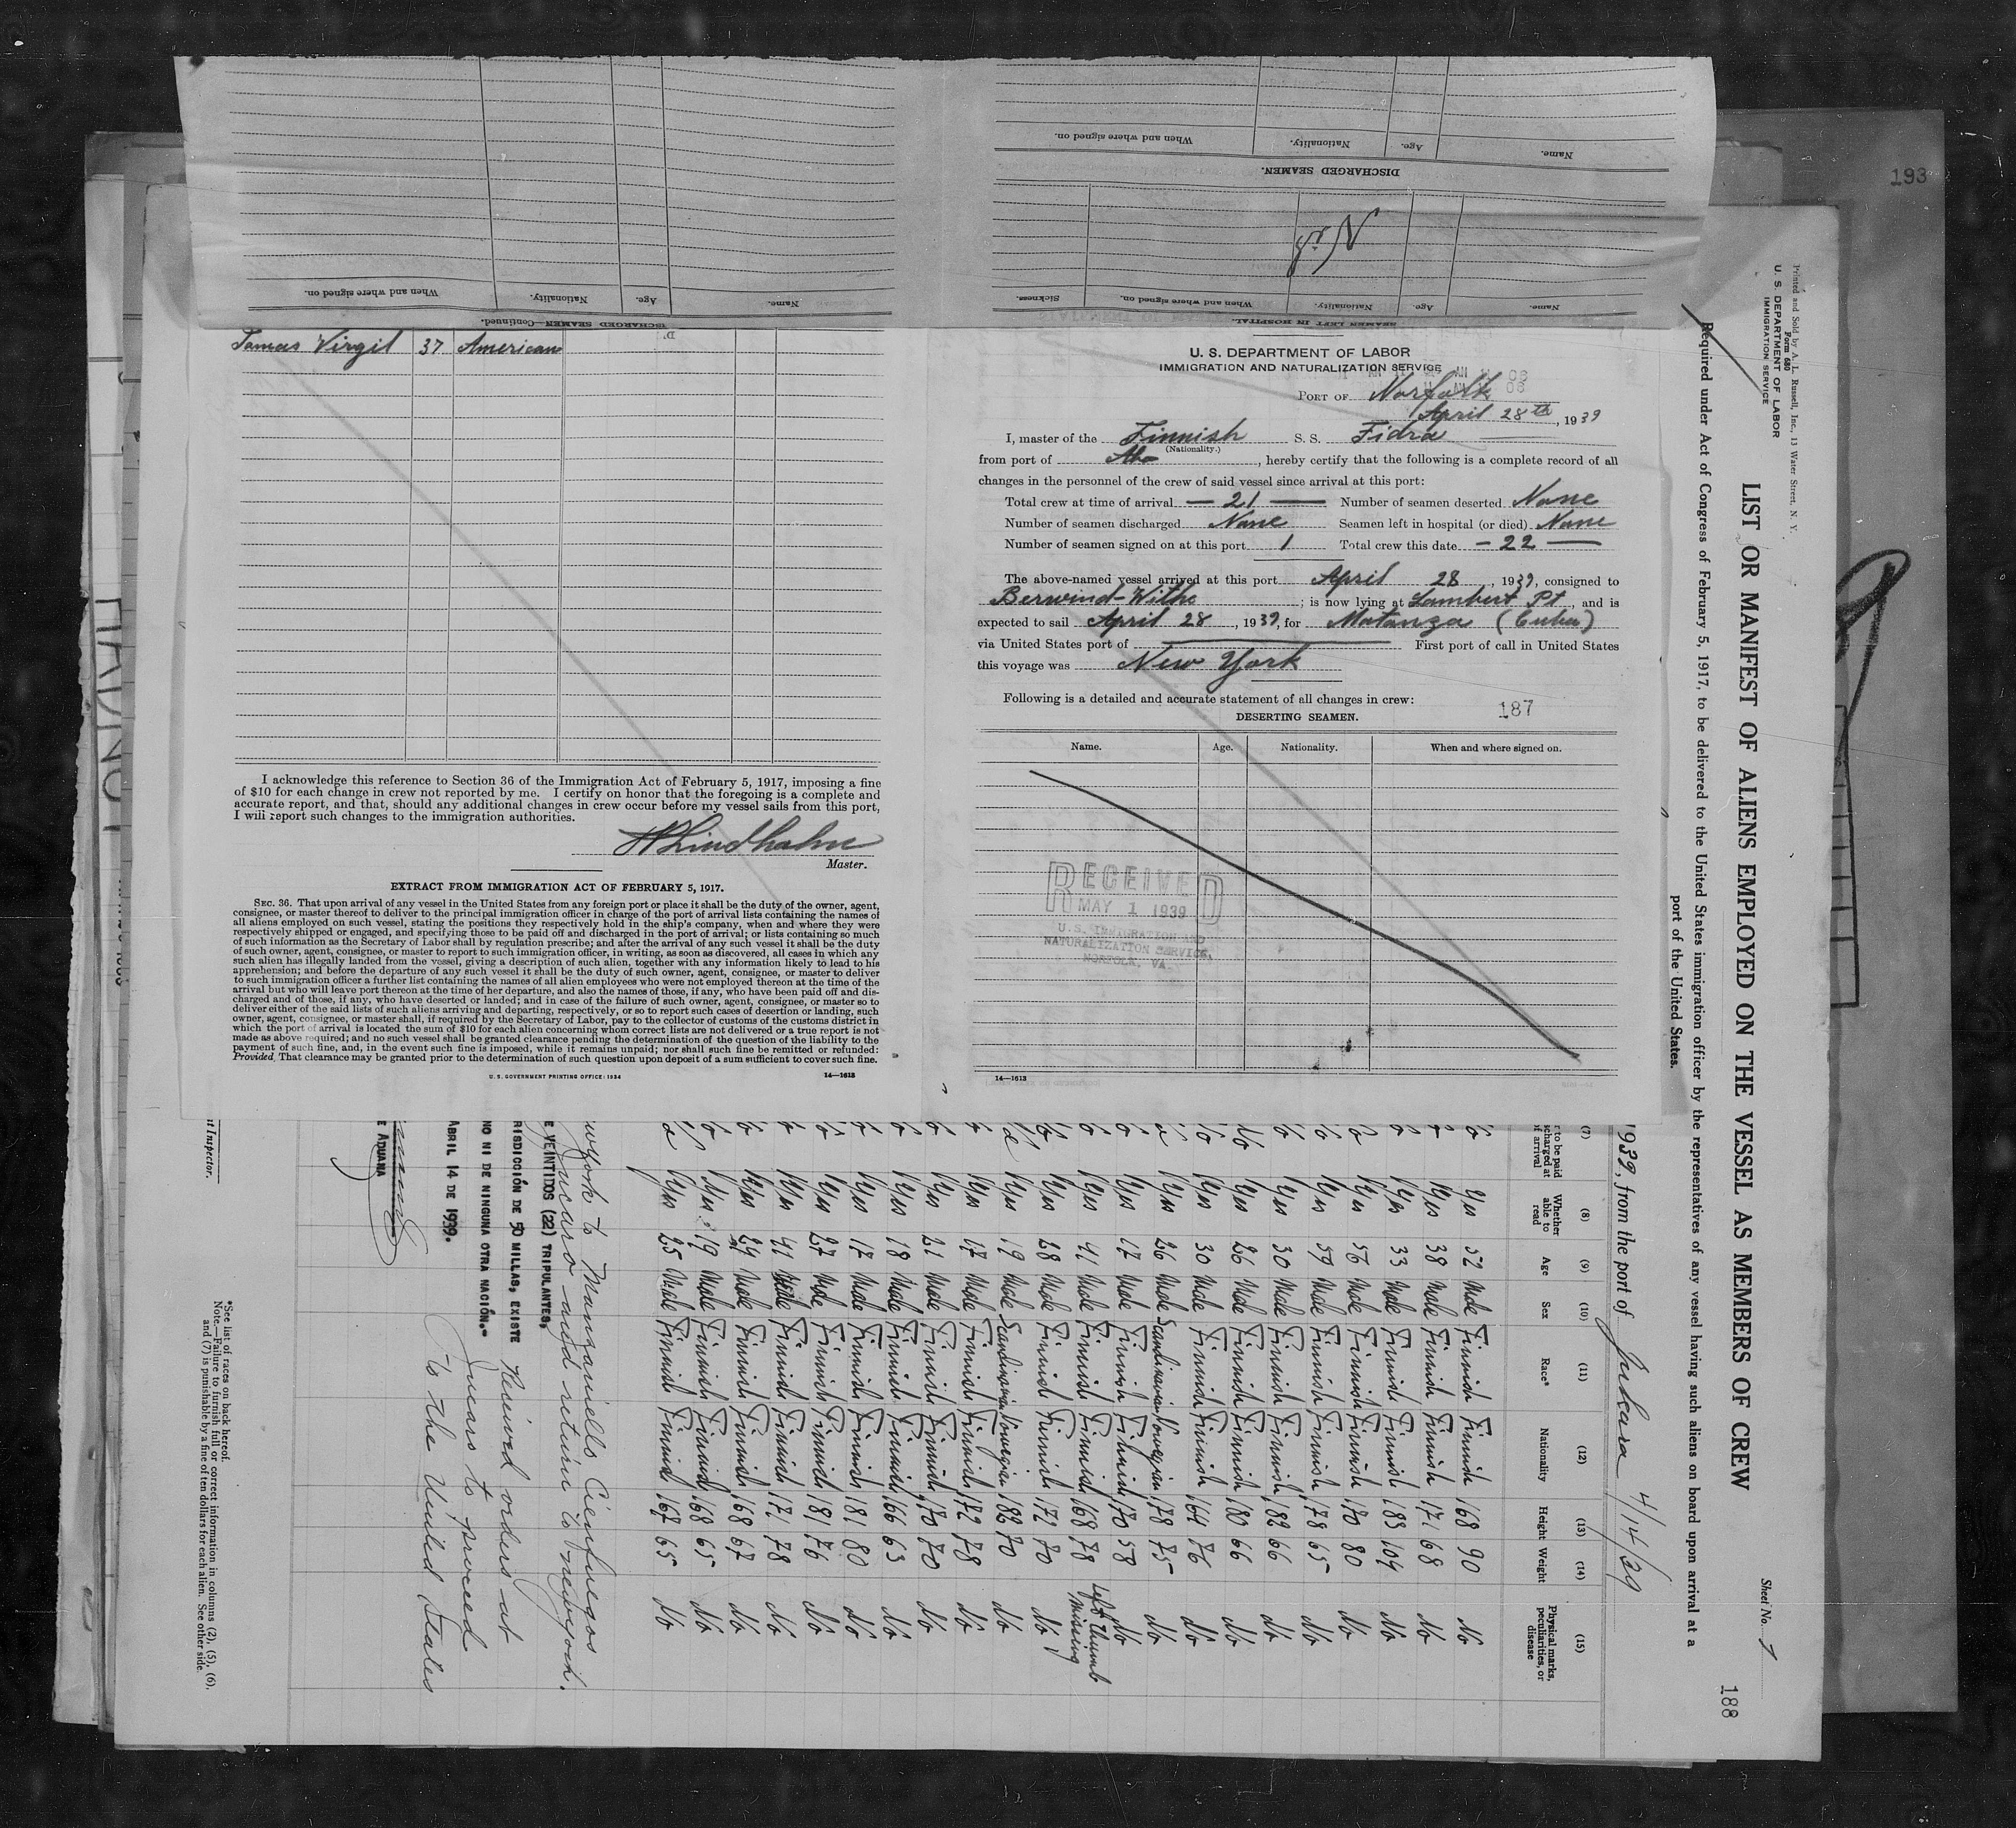 193
When and where signed on.
Nationality.
Age.
Name.
DISCHARGED SEAMEN—Continued.
When and where signed on.
Nationality.
Age.
Name.
DISCHARGED SEAMEN.
Sickness.
When and where signed on.
Nationality.
Age.
Name.
SEAMEN LEFT IN HOSPITAL.
Virgil 37 American
I acknowledge this reference to Section 36 of the Immigration Act of February 5, 1917, imposing a fine
of $10 for each change in crew not reported by me. I certify on honor that the foregoing is a complete and
accurate report, and that, should any additional changes in crew occur before my vessel sails from this port,
I will report such changes to the immigration authorities.
Master.
EXTRACT FROM IMMIGRATION ACT OF FEBRUARY 5, 1917.
SEC. 36. That upon arrival of any vessel in the United States from any foreign port or place it shall be the duty of the owner, agent,
consignee, or master thereof to deliver to the principal immigration officer in charge of the port of arrival lists containing the names of
all aliens employed on such vessel, stating the positions they respectively hold in the ship's company, when and where they were
respectively shipped or engaged, and specifying those to be paid off and discharged in the port of arrival; or lists containing so much
of such information as the Secretary of Labor shall by regulation prescribe; and after the arrival of any such vessel it shall be the duty
of such owner, agent, consignee, or master to report to such immigration officer, in writing, as soon as discovered, all cases in which any
such alien has illegally landed from the vessel, giving a description of such alien, together with any information likely to lead to his
apprehension; and before the departure of any such vessel it shall be the duty of such owner, agent, consignee, or master to deliver
to such immigration officer a further list containing the names of all alien employees who were not employed thereon at the time of the
arrival but who will leave port thereon at the time of her departure, and also the names of those, if any, who have been paid off and dis-
charged and of those, if any, who have deserted or landed; and in case of the failure of such owner, agent, consignee, or master so to
deliver either of the said lists of such aliens arriving and departing, respectively, or so to report such cases of desertion or landing, such
owner, agent, consignee, or master shall, if required by the Secretary of Labor, pay to the collector of customs of the customs district in
which the port of arrival is located the sum of $10 for each alien concerning whom correct lists are not delivered or a true report is not
made as above required; and no such vessel shall be granted clearance pending the determination of the question of the liability to the
payment of such fine, and, in the event such fine is imposed, while it remains unpaid; nor shall such fine be remitted or refunded:
Provided, That clearance may be granted prior to the determination of such question upon deposit of a sum sufficient to cover such fine.
U. S. GOVERNMENT PRINTING OFFICE: 1934 14—1613
U. S. DEPARTMENT OF LABOR
IMMIGRATION AND NATURALIZATION SERVICE
PORT OF Norfolk
April 28th, 1939
I, master of the Finnish S. S. Fidra
(Nationality.)
from port of Abo, hereby certify that the following is a complete record of all
changes in the personnel of the crew of said vessel since arrival at this port:
Total crew at time of arrival — 21 — Number of seamen deserted None
Number of seamen discharged None Seamen left in hospital (or died) None
Number of seamen signed on at this port 1 Total crew this date — 22 —
The above-named vessel arrived at this port April 28, 1939, consigned to
Berwind-Withe; is now lying at Lambert Pt, and is
expected to sail April 28, 1939, for Matanza (Cuba)
via United States port of First port of call in United States
this voyage was New York
Following is a detailed and accurate statement of all changes in crew:
187
DESERTING SEAMEN.
Name. Age. Nationality. When and where signed on.
RECEIVED
MAY 1 1939
U.S. IMMIGRATION AND
NATURALIZATION SERVICE,
NORFOLK, VA.
14—1613
Printed and Sold by A. L. Russell, Inc., 13 Water Street, N. Y.
Form 680
U. S. DEPARTMENT OF LABOR
IMMIGRATION SERVICE
Sheet No. 1
188
LIST OR MANIFEST OF ALIENS EMPLOYED ON THE VESSEL AS MEMBERS OF CREW
Required under Act of Congress of February 5, 1917, to be delivered to the United States immigration officer by the representatives of any vessel having such aliens on board upon arrival at a
port of the United States.
1939, from the port of Jukara 4/14/39
(7) (8) (9) (10) (11) (12) (13) (14) (15)
Whether able to read Age Sex Race* Nationality Height Weight Physical marks, peculiarities, or disease
Yes 52 Male Finnish Finnish 168 90 No
Yes 38 Male Finnish Finnish 171 68 No
Yes 33 Male Finnish Finnish 183 104 No
Yes 56 Male Finnish Finnish 170 80 No
Yes 59 Male Finnish Finnish 178 65 No
Yes 30 Male Finnish Finnish 182 66 No
Yes 26 Male Finnish Finnish 180 66 No
Yes 30 Male Finnish Finnish 164 76 No
Yes 26 Male Scandinavian Norwegian 178 75 No
Yes 17 Male Finnish Finnish 170 58 No
Yes 41 Male Finnish Finnish 168 78 Left thumb missing
Yes 28 Male Finnish Finnish 172 70 No
Yes 19 Male Scandinavian Norwegian 182 70 No
Yes 17 Male Finnish Finnish 172 78 No
Yes 21 Male Finnish Finnish 170 70 No
Yes 18 Male Finnish Finnish 166 63 No
Yes 17 Male Finnish Finnish 181 80 No
Yes 27 Male Finnish Finnish 181 76 No
Yes 41 Male Finnish Finnish 171 78 No
Yes 24 Male Finnish Finnish 168 67 No
Yes 19 Male Finnish Finnish 168 65 No
Yes 25 Male Finnish Finnish 167 65 No
New York to Manzanillo Cienfuegos
Jucaro and return to New York.
E VEINTIDOS (22) TRIPULANTES,
RISDICCIÓN DE 50 MILLAS, EXISTE
NO NI DE NINGUNA OTRA NACIÓN.-
ABRIL 14 DE 1939.
E ADUANA
Received orders at
Jucaro to proceed
to the United States
t Inspector.
*See list of races on back hereof.
Note.—Failure to furnish full or correct information in columns (2), (5), (6),
and (7) is punishable by a fine of ten dollars for each alien. See other side.